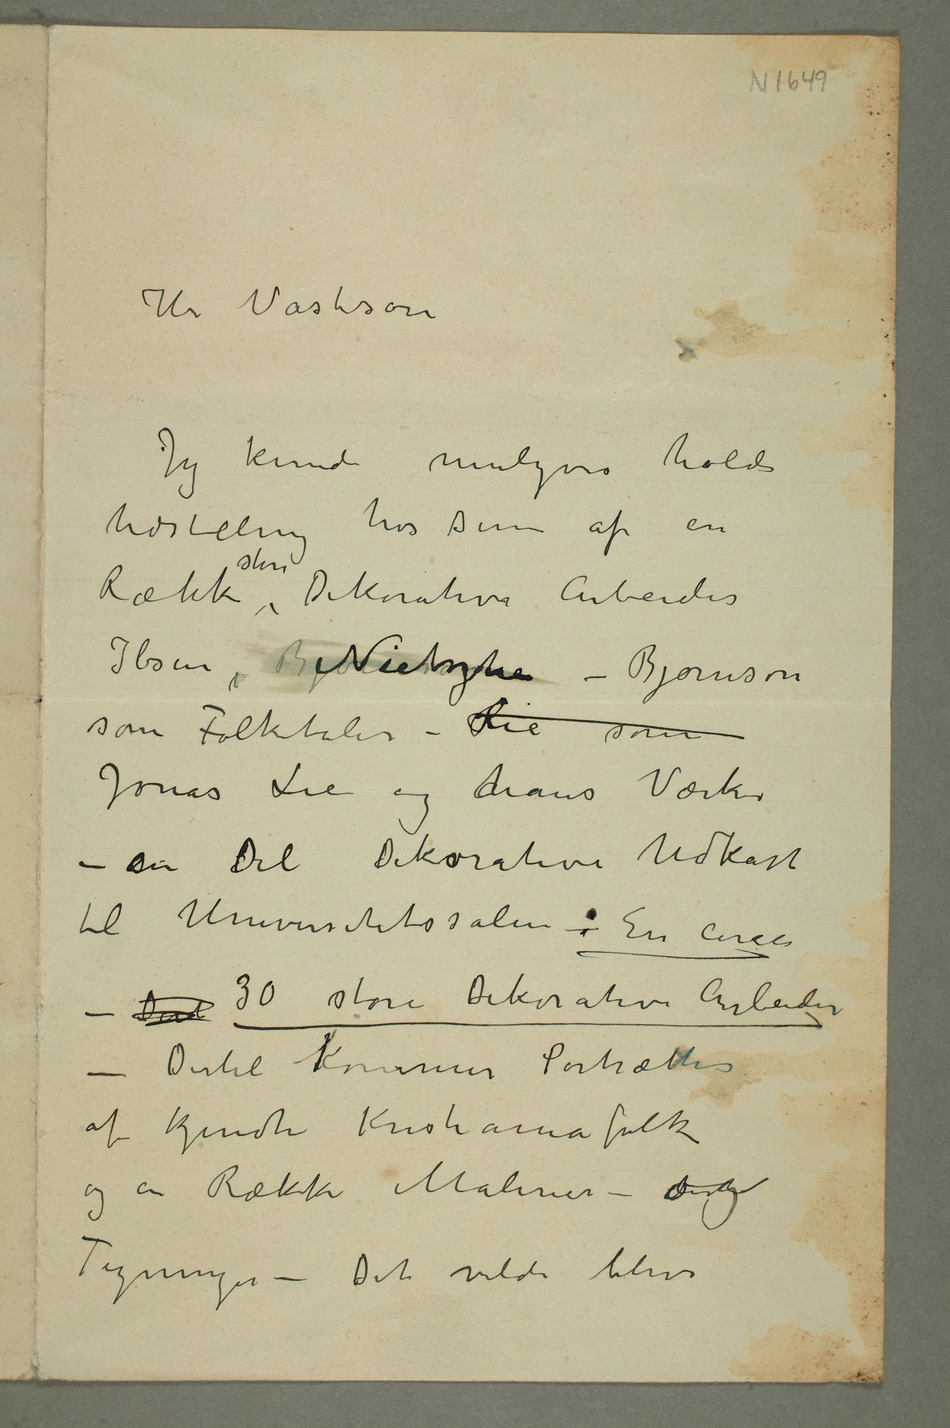 N 1649
Hr Vaskeson
Jg kunde muligvis holde
Udstilling hos Dem af en
Række store Dekorative Arbeider
Ibsen, Nietzche – Bjørnson
som Folketaler – Lie som
Jonas Lie og hans Værker
– en Del Dekorative Udkast
til Universitetssalen : En circa
– Del 30 store Dekorative Arbeider
– Dertil kommer Portrætter
af kjendte Kristianiafolk
og en Række Malerier – og
Tegninger – Det vilde blive